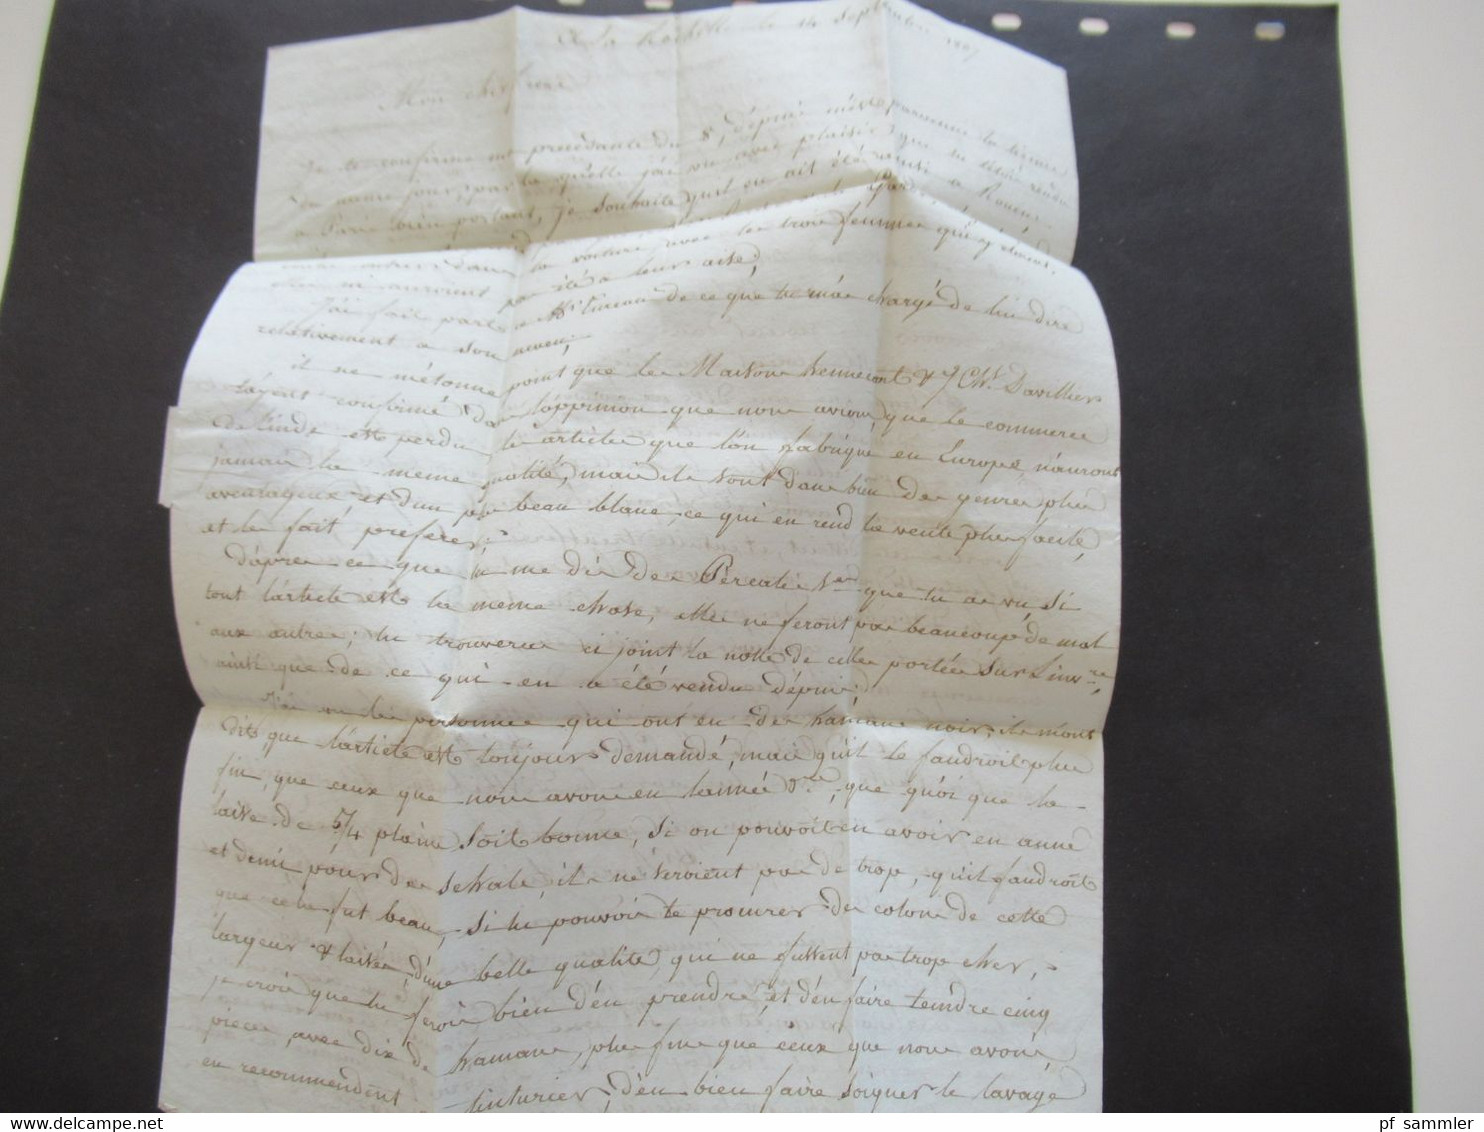 A la Rochelle le 14 Septembre 1807
Mon cher frere
Je te confirme ma précédante du 8, dépuis m'est parvenue la tienne
du meme jour, par la quelle j'ai vu avec plaisir que tu étois rendu
a Paris bien portant, je souhaite qu'il en ait été ainsi a Rouen
la voiture avec les trois femmes qui y étoient,
n'auroient pas été a leur aise,
J'ai fait part a Mr de ce que tu m'as chargé de lui dire
relativement a son neveu,
il ne m'étonne point que les Maisons hennecart & J Ch. Davillier
t'ayent confirmé dans l'oppinion que nous avions, que le commerce
de l'inde est perdu, les articles que l'on fabrique en Europe, n'auront
jamais la meme qualité, mais ils sont dans bien des genres plus
aventageux et d'un plus beau blanc, ce qui en rend la vente plus facile,
et les fait preferer;
D'apres ce que tu me dis des Percales que tu as vu, si
tout l'article est la meme chose, elles ne feront pas beaucoup de mal
aux autres; tu trouveras ci joint la note de celles portées sur L'inv.re
ainsi que de ce qui en a été vendu dépuis;
J'ai vu les personnes qui ont eu des hamans noirs, ils m'ont
dit, que l'article est toujours demandé, mais qu'il le faudroit plus
fin, que ceux que nous avons eu l'année d.re, que quoi que la
laise de 5/4 pleine soit bonne, si on pouvoit en avoir en aune
et demi pour des schals, ils ne seroient pas de trop, qu'il faudroit
que cela fut beau, si tu pouvois te procurer des cotons de cette
largeur & laises, d'une belle qualité, qui ne fussent pas trop cher,
je crois que tu ferois bien d'en prendre, et d'en faire teindre cinq
pieces, avec dix de hamans, plus fins que ceux que nous avons,
en recommendent teinturier, d'en bien faire soigner le lavage
pf sammler